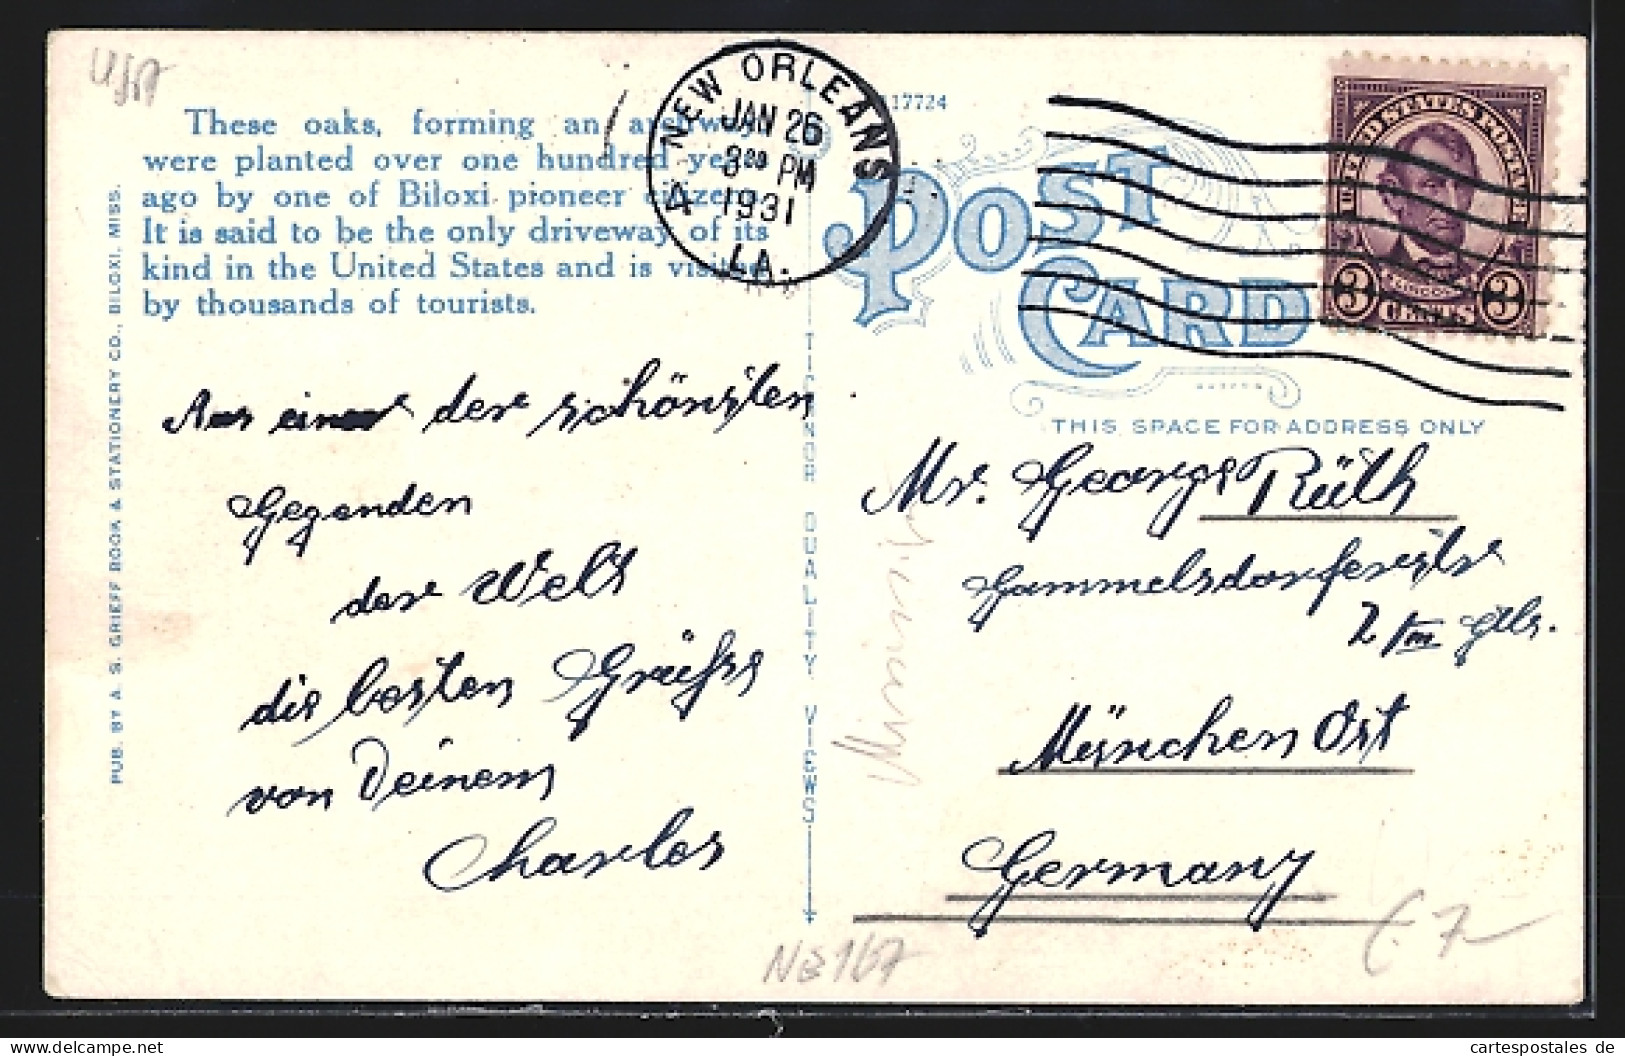 These oaks, forming an archway,
were planted over one hundred years
ago by one of Biloxi pioneer citizens.
It is said to be the only driveway of its
kind in the United States and is visited
by thousands of tourists.
PUB. BY A. S. GRIEFF BOOK & STATIONERY CO., BILOXI, MISS.
NEW ORLEANS
JAN 26
8 00 PM
1931
LA.
4
117724
POST
CARD
UNITED STATES POSTAGE
LINCOLN
3 CENTS 3
THIS SPACE FOR ADDRESS ONLY
TICHNOR QUALITY VIEWS
Aus einer der schönsten
Gegenden
der Welt
die besten Grüsse
von Deinem
Charles
Mr. George Rüth
Hammelsdorferstr
2/III
München Ost
Germany
Mississippi
NB167
7
cartespostales de